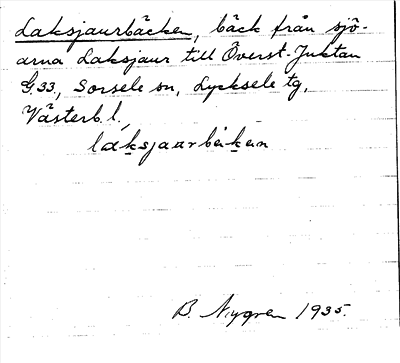 Laksjaurbäcken, bäck från sjö-
arna Laksjaur till Överst-Juktan
G33, Sorsele sn, Lycksele tg,
Västerb. l.
laksjaarbäkan
B. Nygren 1935.